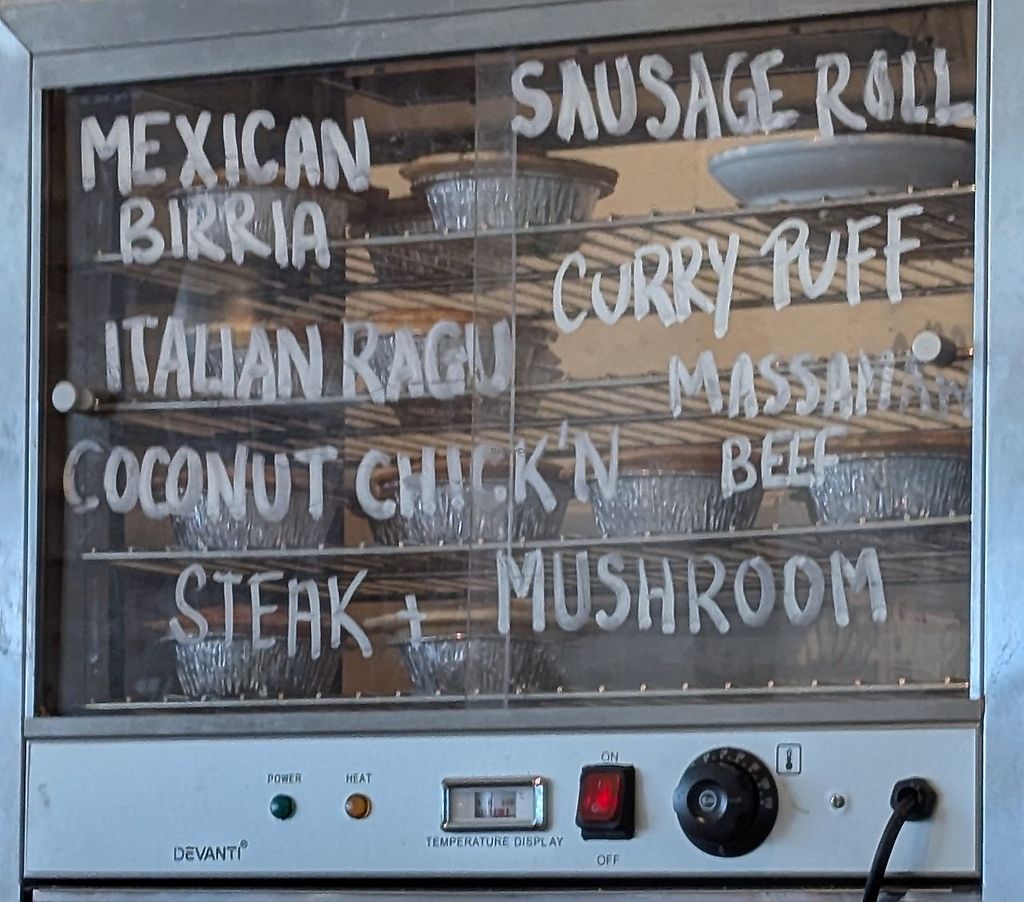 MEXICAN
BIRRIA
ITALIAN RAGU
COCONUT CHICK'N
STEAK + MUSHROOM
SAUSAGE ROLL
CURRY PUFF
MASSAMAN
BEEF
POWER
HEAT
DEVANTI
TEMPERATURE DISPLAY
ON
OFF